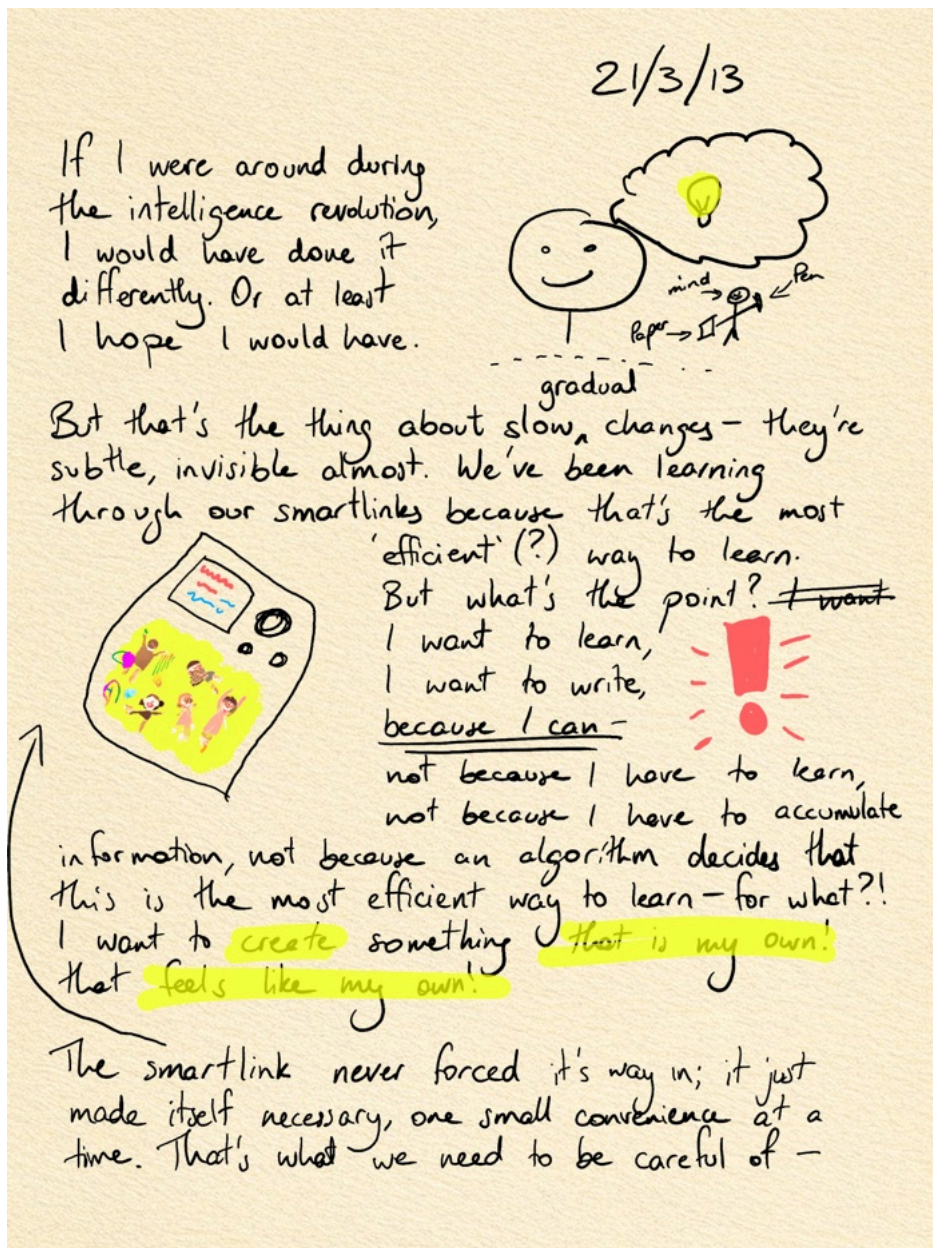 21/3/13
If I were around during
the intelligence revolution,
I would have done it
differently. Or at least
I hope I would have.
mind
Pen
Paper
gradual
But that's the thing about slow changes – they're
subtle, invisible almost. We've been learning
through our smartlinks because that's the most
'efficient' (?) way to learn.
But what's the point? I want
I want to learn,
I want to write,
because I can –
not because I have to learn,
not because I have to accumulate
information, not because an algorithm decides that
this is the most efficient way to learn – for what?!
I want to create something that is my own!
that feels like my own!
The smartlink never forced it's way in; it just
made itself necessary, one small convenience at a
time. That's what we need to be careful of –